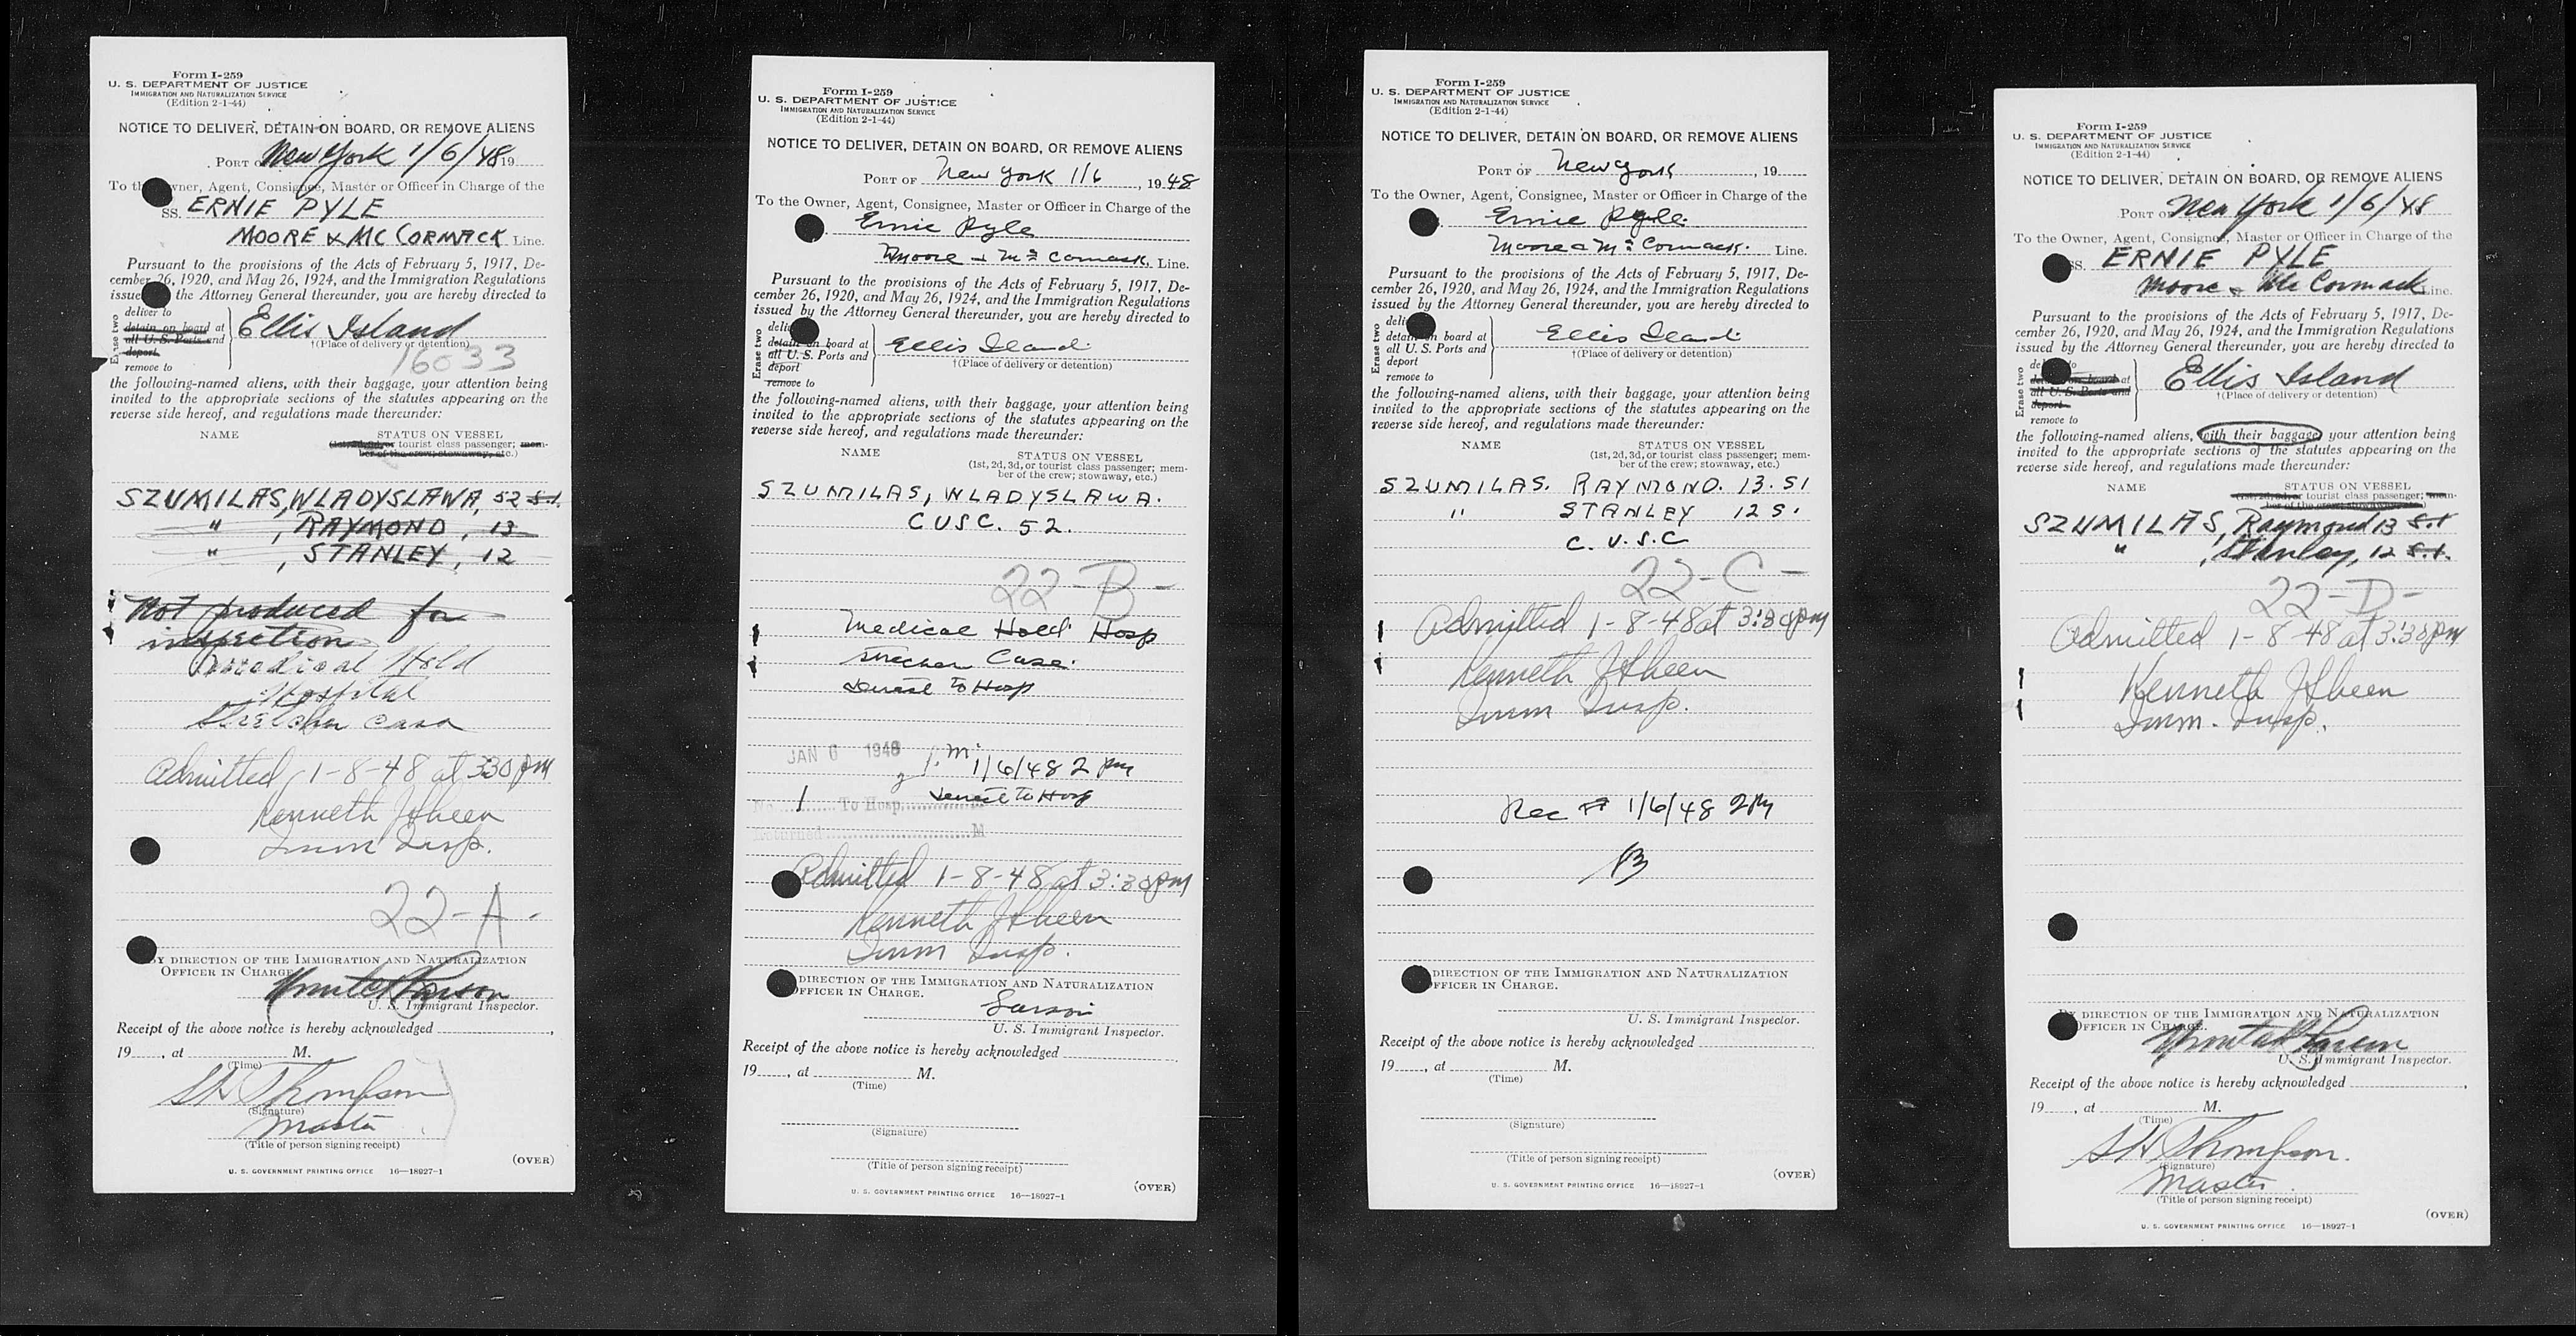 Form I-259
U. S. DEPARTMENT OF JUSTICE
IMMIGRATION AND NATURALIZATION SERVICE
(Edition 2-1-44)
NOTICE TO DELIVER, DETAIN ON BOARD, OR REMOVE ALIENS
PORT O New York 1/6/48 19
To th wner, Agent, Consignee, Master or Officer in Charge of the
SS. ERNIE PYLE
MOORE & MC CORMACK Line.
Pursuant to the provisions of the Acts of February 5, 1917, De-
cember 26, 1920, and May 26, 1924, and the Immigration Regulations
issue the Attorney General thereunder, you are hereby directed to
Erase two
deliver to
detain on board at
all U. S. Ports and
deport
remove to
Ellis Island
†(Place of delivery or detention)
16033
the following-named aliens, with their baggage, your attention being
invited to the appropriate sections of the statutes appearing on the
reverse side hereof, and regulations made thereunder:
NAME STATUS ON VESSEL
(1st, 2d, 3d, or tourist class passenger; mem-
ber of the crew; stowaway, etc.)
SZUMILAS, WLADYSLAWA, 52 S.I.
" , RAYMOND, 13
" , STANLEY, 12
Not produced for
inspection
Medical Hold
Hospital
Stretcher case
Admitted 1-8-48 at 330 pm
Kenneth J Sheen
Imm Insp.
22-A-
Y DIRECTION OF THE IMMIGRATION AND NATURALIZATION
OFFICER IN CHARGE
U. S. Immigrant Inspector.
Receipt of the above notice is hereby acknowledged
19 , at M.
(Time)
SH Thompson
(Signature)
Master
(Title of person signing receipt)
(OVER)
U. S. GOVERNMENT PRINTING OFFICE 16—18927-1
Form I-259
U. S. DEPARTMENT OF JUSTICE
IMMIGRATION AND NATURALIZATION SERVICE
(Edition 2-1-44)
NOTICE TO DELIVER, DETAIN ON BOARD, OR REMOVE ALIENS
PORT OF New York 1/6 , 19 48
To the Owner, Agent, Consignee, Master or Officer in Charge of the
Ernie Pyle
Moore & Mc Cormack, Line.
Pursuant to the provisions of the Acts of February 5, 1917, De-
cember 26, 1920, and May 26, 1924, and the Immigration Regulations
issued by the Attorney General thereunder, you are hereby directed to
Erase two
deli
detain on board at
all U. S. Ports and
deport
remove to
Ellis Island
†(Place of delivery or detention)
the following-named aliens, with their baggage, your attention being
invited to the appropriate sections of the statutes appearing on the
reverse side hereof, and regulations made thereunder:
NAME STATUS ON VESSEL
(1st, 2d, 3d, or tourist class passenger; mem-
ber of the crew; stowaway, etc.)
SZUMILAS, WLADYSLAWA.
CUSC. 52.
22-B-
Medical Hold Hosp
Strecher Case.
to Hosp
JAN 6 1948
1/6/48 2 pm
No. 1 To Hosp. to Hosp
Returned M
Admitted 1-8-48 at 3:30 pm
Kenneth J Sheen
Imm Insp.
DIRECTION OF THE IMMIGRATION AND NATURALIZATION
OFFICER IN CHARGE.
U. S. Immigrant Inspector.
Receipt of the above notice is hereby acknowledged
19 , at M.
(Time)
(Signature)
(Title of person signing receipt)
(OVER)
U. S. GOVERNMENT PRINTING OFFICE 16—18927-1
Form I-259
U. S. DEPARTMENT OF JUSTICE
IMMIGRATION AND NATURALIZATION SERVICE
(Edition 2-1-44)
NOTICE TO DELIVER, DETAIN ON BOARD, OR REMOVE ALIENS
PORT OF New York , 19
To the Owner, Agent, Consignee, Master or Officer in Charge of the
Ernie Pyle
Moore & Mc Cormack. Line.
Pursuant to the provisions of the Acts of February 5, 1917, De-
cember 26, 1920, and May 26, 1924, and the Immigration Regulations
issued by the Attorney General thereunder, you are hereby directed to
Erase two
deli
detain on board at
all U. S. Ports and
deport
remove to
Ellis Island
†(Place of delivery or detention)
the following-named aliens, with their baggage, your attention being
invited to the appropriate sections of the statutes appearing on the
reverse side hereof, and regulations made thereunder:
NAME STATUS ON VESSEL
(1st, 2d, 3d, or tourist class passenger; mem-
ber of the crew; stowaway, etc.)
SZUMILAS. RAYMOND. 13. SI
" STANLEY 12 S.
C. U. S. C
22-C-
Admitted 1-8-48 at 3:30 pm
Kenneth J Sheen
Imm Insp.
Rec 1/6/48 2PM
B
DIRECTION OF THE IMMIGRATION AND NATURALIZATION
OFFICER IN CHARGE.
U. S. Immigrant Inspector.
Receipt of the above notice is hereby acknowledged
19 , at M.
(Time)
(Signature)
(Title of person signing receipt)
(OVER)
U. S. GOVERNMENT PRINTING OFFICE 16—18927-1
Form I-259
U. S. DEPARTMENT OF JUSTICE
IMMIGRATION AND NATURALIZATION SERVICE
(Edition 2-1-44)
NOTICE TO DELIVER, DETAIN ON BOARD, OR REMOVE ALIENS
PORT O New York 1/6/48
To the Owner, Agent, Consignee, Master or Officer in Charge of the
SS. ERNIE PYLE
Moore & Mc Cormack Line.
Pursuant to the provisions of the Acts of February 5, 1917, De-
cember 26, 1920, and May 26, 1924, and the Immigration Regulations
issued by the Attorney General thereunder, you are hereby directed to
Erase two
de to
detain on board at
all U. S. Ports and
deport
remove to
Ellis Island
†(Place of delivery or detention)
the following-named aliens, with their baggage, your attention being
invited to the appropriate sections of the statutes appearing on the
reverse side hereof, and regulations made thereunder:
NAME STATUS ON VESSEL
(1st, 2d, 3d, or tourist class passenger; mem-
ber of the crew; stowaway, etc.)
SZUMILAS, Raymond 13 S.I
" , Stanley, 12 S.I.
22-D-
Admitted 1-8-48 at 3:30 pm
Kenneth J Sheen
Imm. Insp.
BY DIRECTION OF THE IMMIGRATION AND NATURALIZATION
OFFICER IN CHARGE.
U. S. Immigrant Inspector.
Receipt of the above notice is hereby acknowledged
19 , at M.
(Time)
SH Thompson.
(Signature)
Master
(Title of person signing receipt)
(OVER)
U. S. GOVERNMENT PRINTING OFFICE 16—18927-1